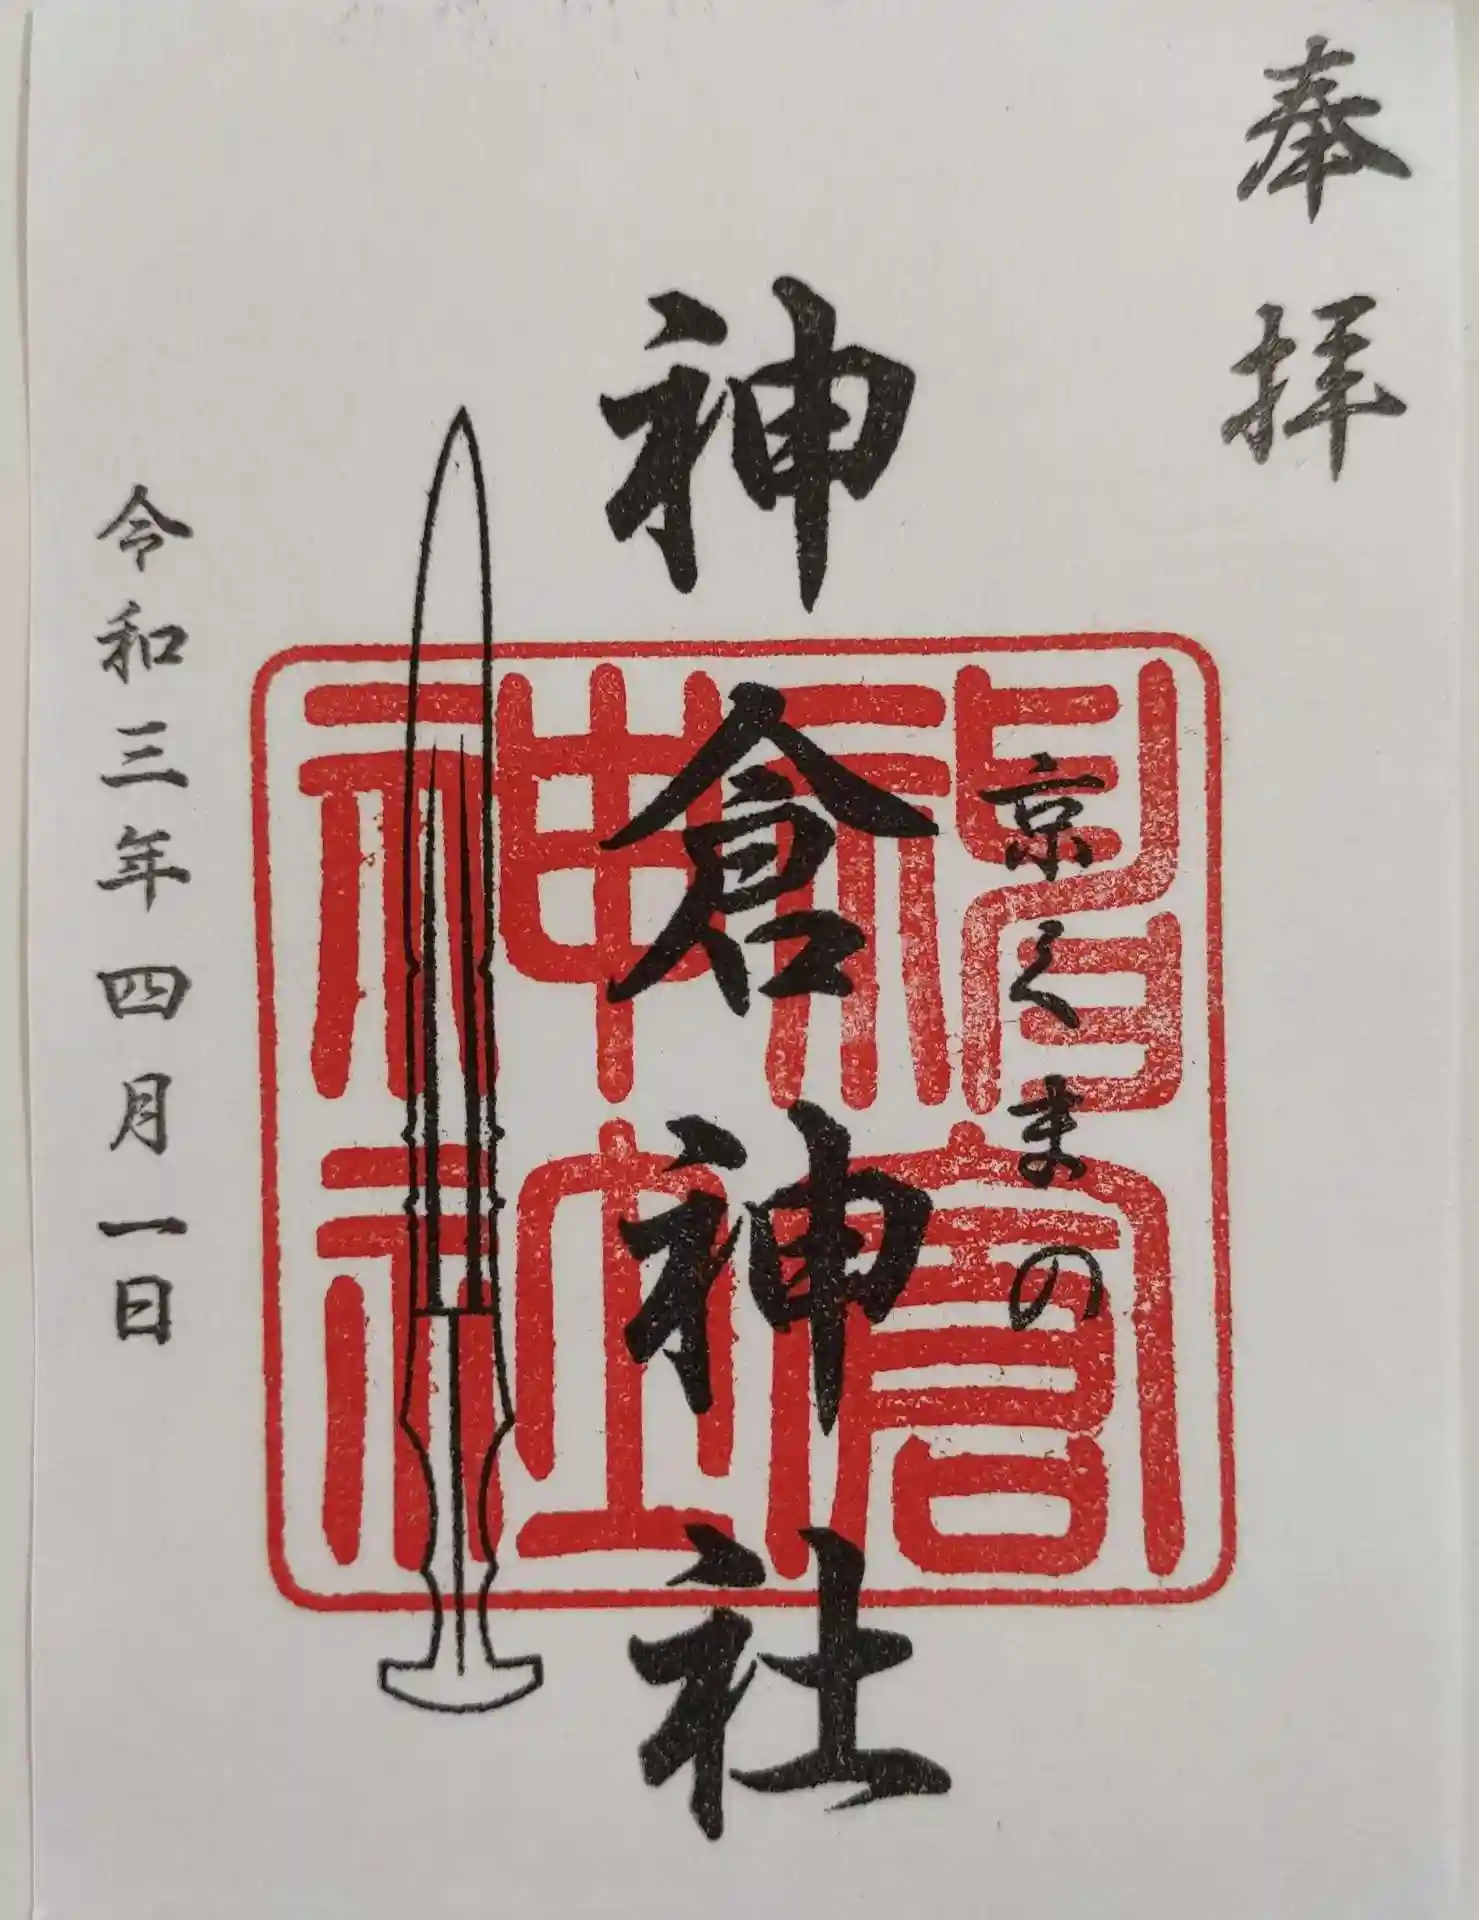 奉拝
京くまの
神倉神社
令和三年四月一日